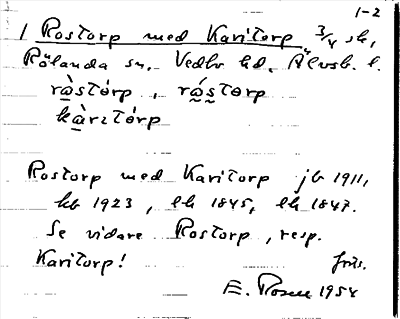 1-2
1 Rostorp med Karitorp 3/4 sk,
Rölanda sn. Vedbo hd. Älvsb. l.
ràstórp, rástorp
kàrItórp
Rostorp med Karitorp jb 1911,
kb 1923, lk 1845, lk 1847.
Se vidare Rostorp, resp.
Karitorp!
E. Rosén 1954